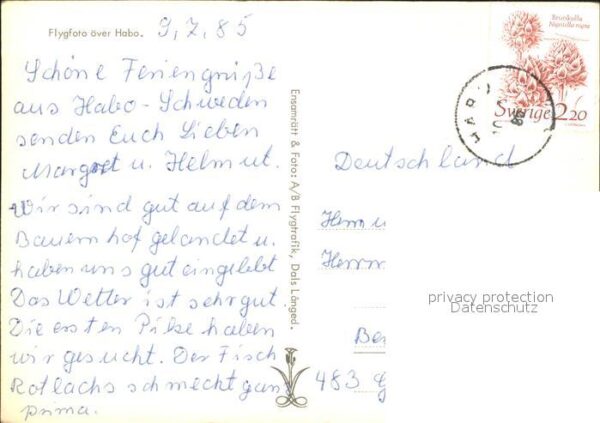 Flygfoto över Habo.
9.7.85
Schöne Feriengrüße
aus Habo-Schweden
senden Euch Lieben
Margret u. Helmut.
Wir sind gut auf dem
Bauernhof gelandet u.
haben uns gut eingelebt
Das Wetter ist sehr gut.
Die ersten Pilze haben
wir gesucht. Der Fisch
Rotlachs schmeckt ganz
prima.
Ensamrätt & Foto: A/B Flygtrafik, Dals Långed.
Brunkulla
Nigritella nigra
Sverige 220
HABO
Deutschland
Herrn u
Herrm
privacy protection
Datenschutz
Be
483